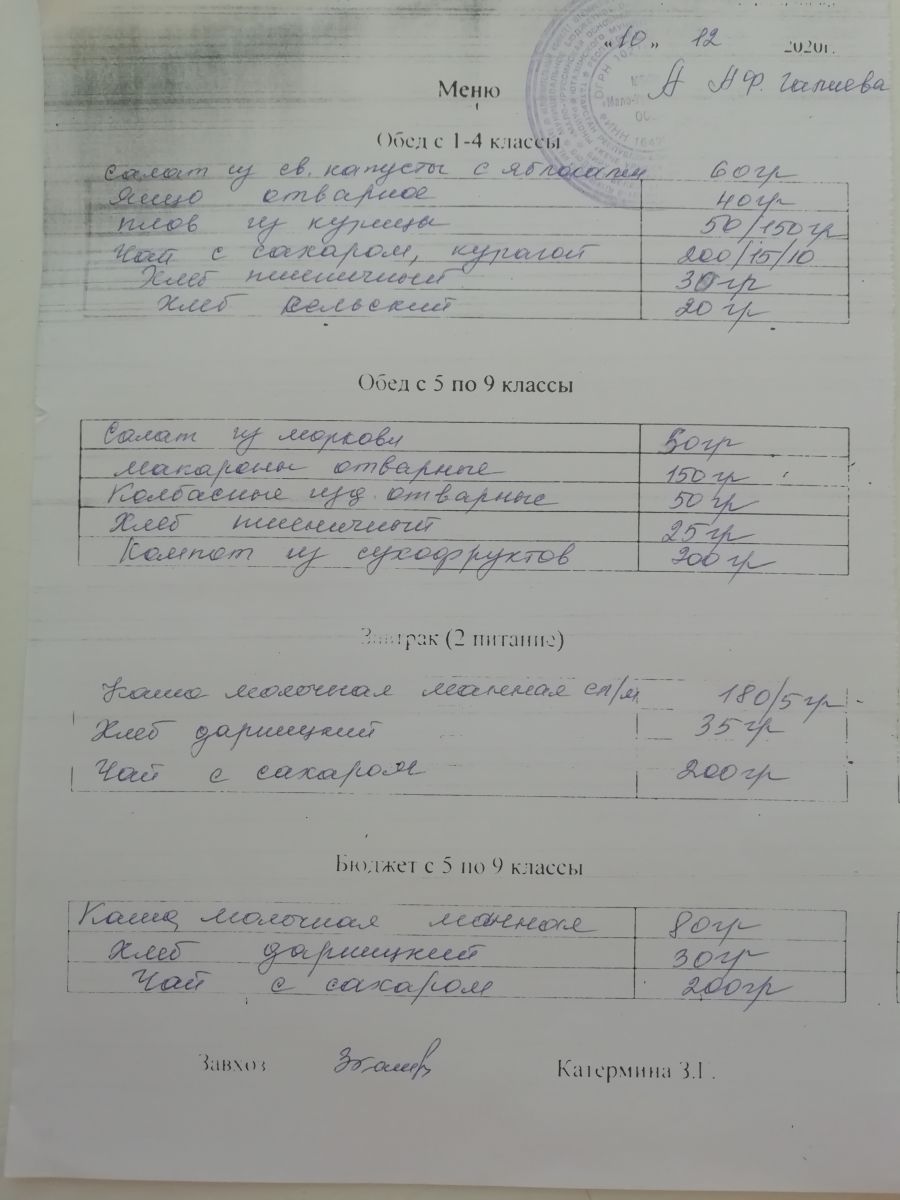 «10» 12 2020г.
Меню
А.Ф. Галиева
Обед с 1-4 классы
Салат из св. капусты с яблоками 60гр
Яйцо отварное 40гр
плов из курицы 50/150гр
Чай с сахаром, курагой 200/15/10
Хлеб пшеничный 30гр
Хлеб сельский 20гр
Обед с 5 по 9 классы
Салат из моркови 50гр
макароны отварные 150гр
Колбасные изд. отварные 50гр
Хлеб пшеничный 25гр
Компот из сухофруктов 200гр
Завтрак (2 питание)
Каша молочная манная сл/м 180/5гр
Хлеб дарницкий 35гр
Чай с сахаром 200гр
Бюджет с 5 по 9 классы
Каша молочная манная 80гр
Хлеб дарницкий 30гр
Чай с сахаром 200гр
Завхоз Катермина З.Г.